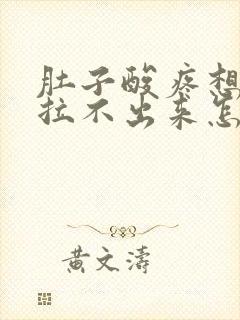 肚子酸疼想
拉不出来怎
黄文涛